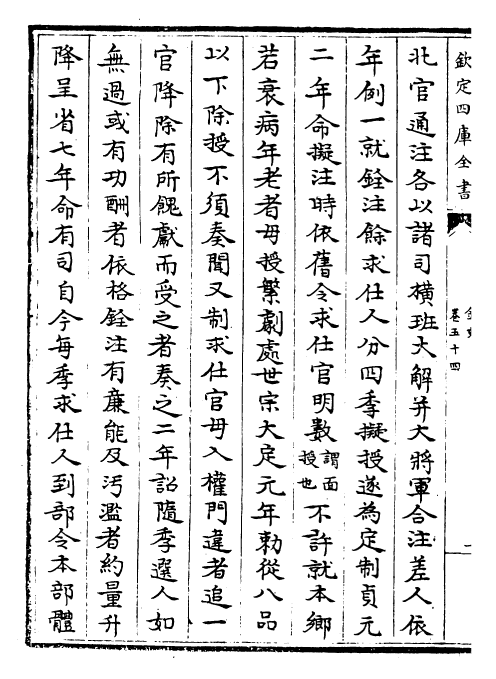 欽定四庫全書
卷五十四
二
北官通注各以諸司橫班大解并大將軍合注差人依
年例一就銓注餘求仕人分四季擬授遂為定制貞元
二年命擬注時依舊令求仕官明數謂面授也不許就本鄉
若衰病年老者毋授繁劇處世宗大定元年勅從八品
以下除授不須奏聞又制求仕官毋入權門違者追一
官降除有所餽獻而受之者奏之二年詔隨季選人如
無過或有功酬者依格銓注有廉能及汚濫者約量升
降呈省七年命有司自今每季求仕人到部令本部體